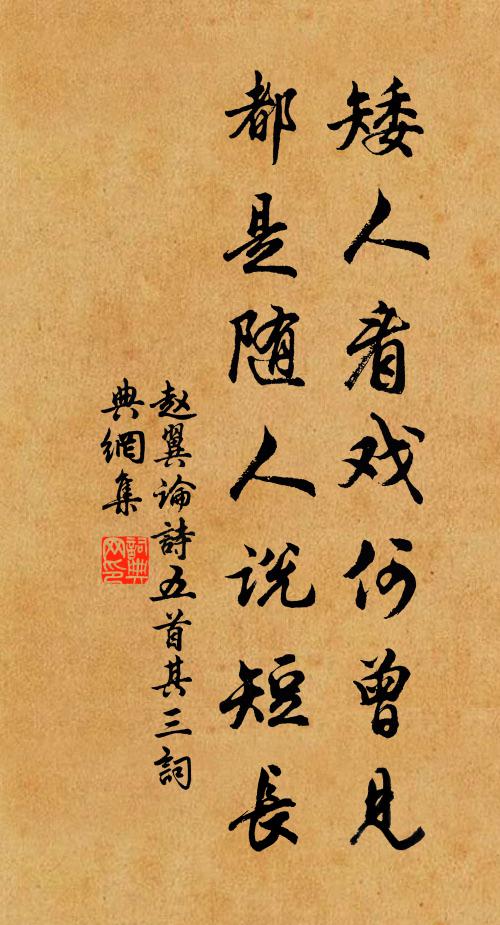 矮人看戏何曾見
都是随人说短長
赵翼论詩五首其三詞
典網集
詞典
网印